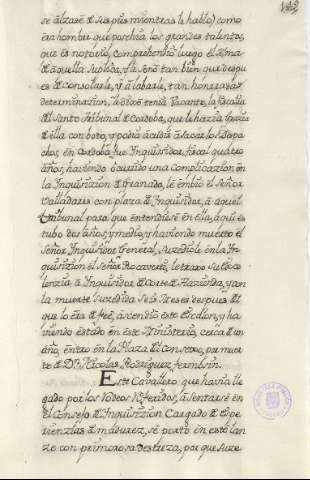 se alzase de sus pies mientras le hablo) como
era hombre que posehia los grandes talentos,
que es notorio, comprehendio luego el Alma
de aquella Subida, i la Seria tan bien que despu
es de consolarle, y alabarle, tan honrrada
determinazion, le dixo tenia Vacante, la fiscalia
del Santo Tribunal de Cordova, que le hazia grazia
de ella con boto, y podia acudir a sacar los Despa
chos, en Cordoba fue Inquisidor, fiscal quatro
años, haviendo ocurrido una Complicazion en
la Inquisizion de Granada, le embio el Señor
Valladares con plaza de Inquisidor, a aquel
tribunal para que entendiese en ella, aqui es
tubo dos años, y medio, y haviendo muerto el
Señor Inquisidor General, Suzediole en la In
quisizion el Señor Rocaverti, le traxo su Exce
lenzia a Inquisidor de Corte de Hazienda, y con
la muerte Suzedida Seis Meses despues del
que lo era de fee, aczendio este Escalon, y ha
viendo estado en este Ministerio, cerca de un
año, entro en la Plaza del Consexo, por muer
te de Dn. Nicolas Rodriguez fermosin.
Este Cavallero, que havia lle
gado por los Vados Referidos, a sentarse en
el Consejo de Inquisizion Cargado de Espe
rienzias, de madurez, se porto en esto lan
ze con primorosa destreza, porque Suze